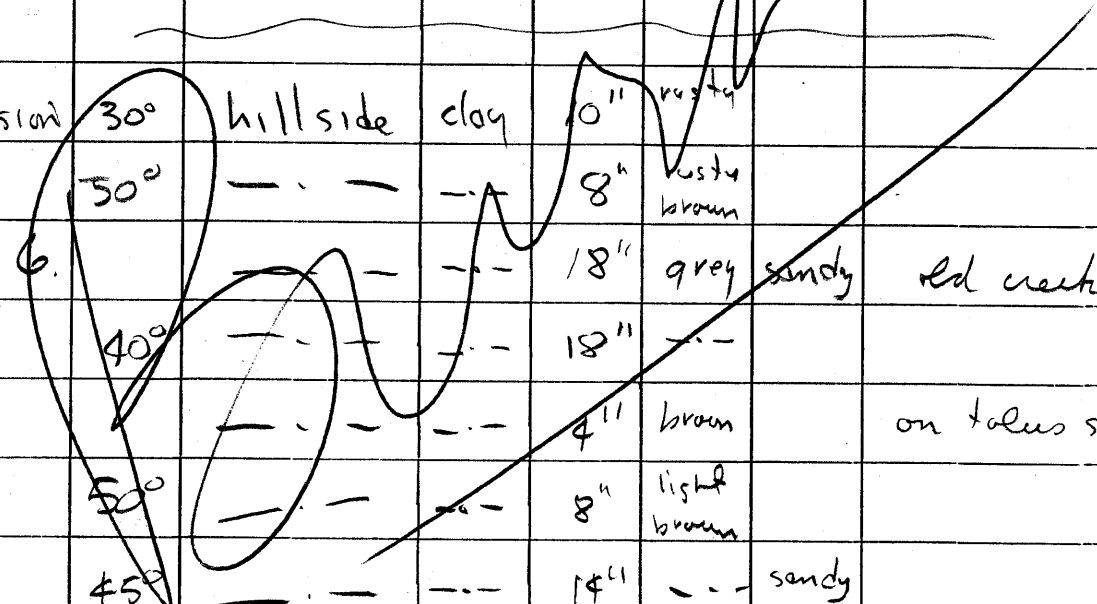 30° hillside clay 10" rusty
50° — · — — · — 8" rusty brown
6. — — — · — 18" grey sandy old creek
40° — · — — · — 18" — · —
— · — — · — 4" brown on talus s
50° — · — — · — 8" light brown
45° — · — — · — 14" — · — sandy